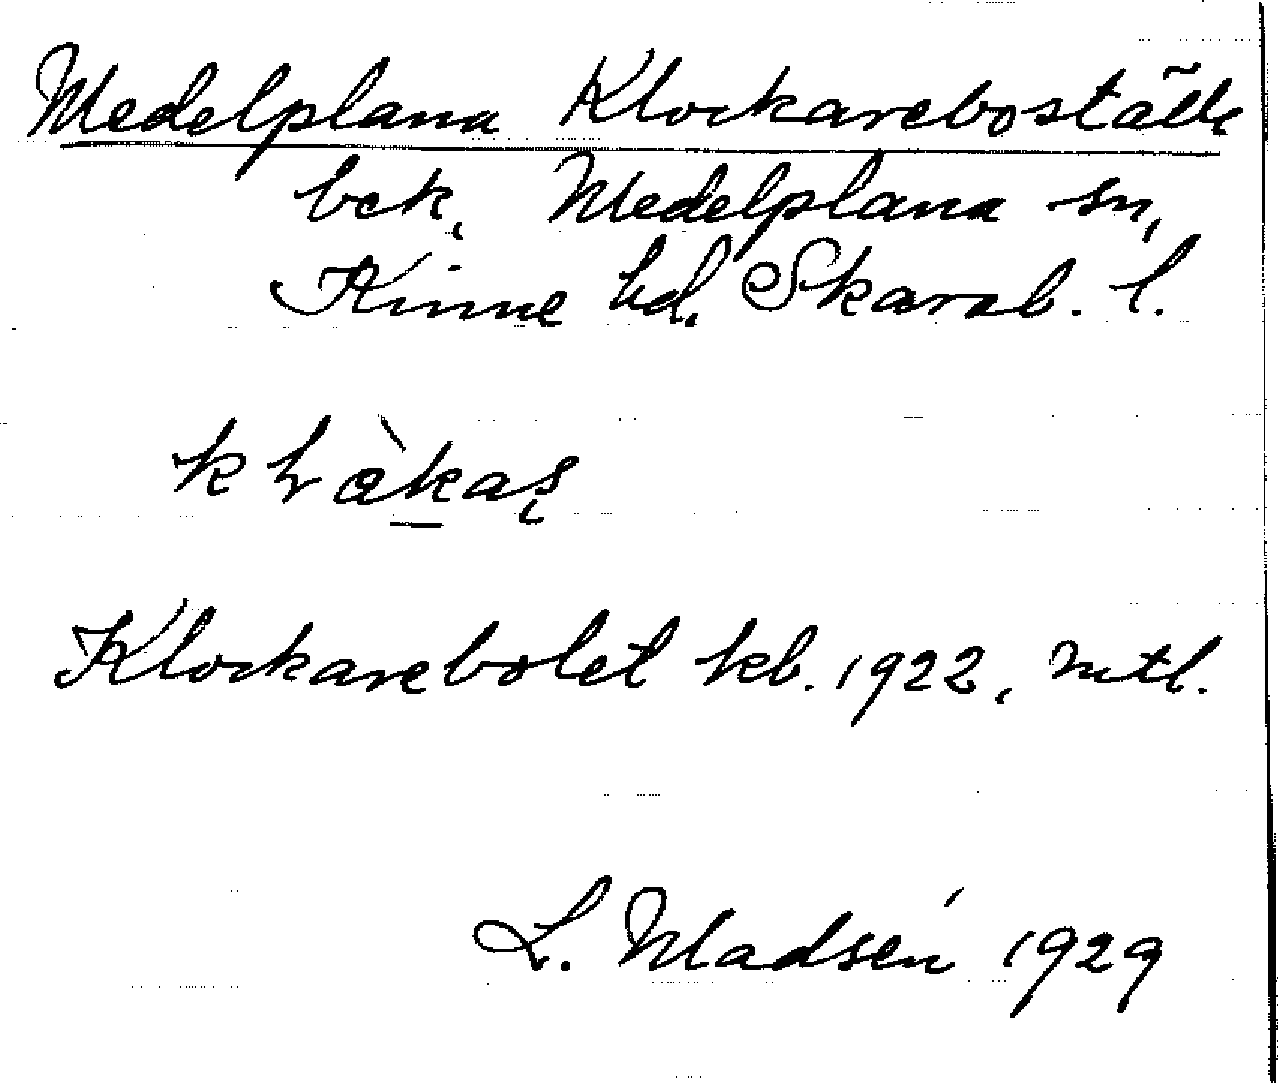 Medelplana Klockareboställe
bek. Medelplana sn,
Kinne hd. Skarab. l.
Klockarebolet kb. 1922, mtl.
L. Madsén 1929